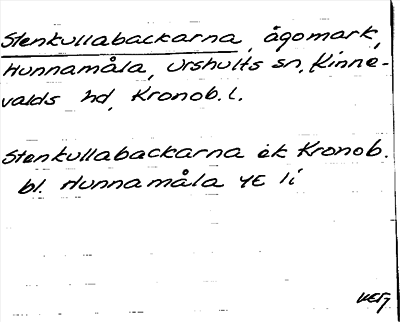 Stenkullabackarna, ägomark,
Hunnamåla, Urshults sn, Kinne-
valds hd, Kronob. l.
Stenkullabackarna ek Kronob.
bl. Hunnamåla 4E 1i